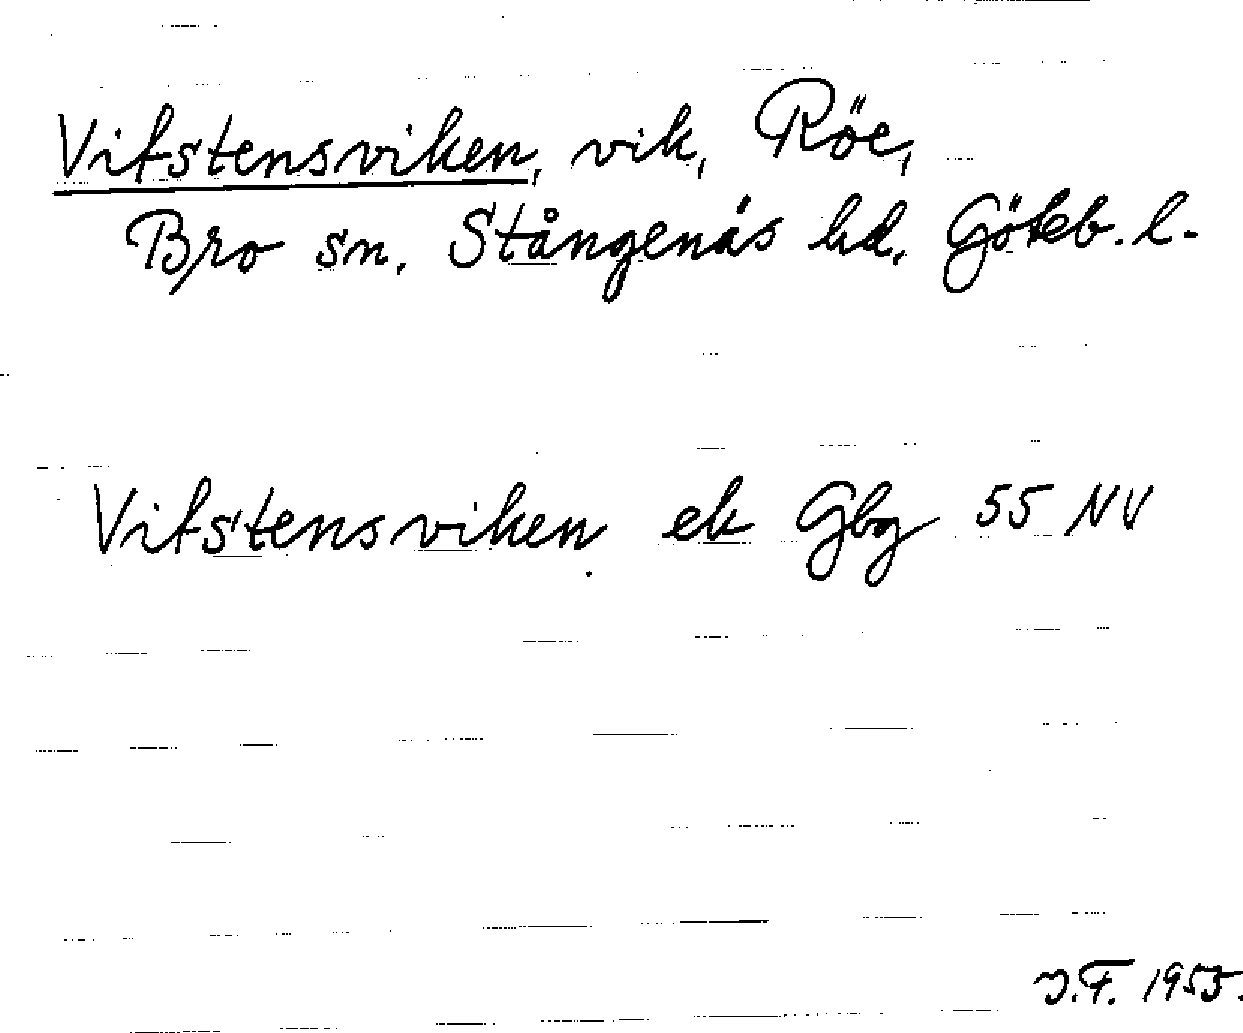 Vitstensviken, vik, Röe,
Bro sn, Stångenäs hd, Göteb. l.
Vitstensviken ek Gbg 55 NV
J.F. 1955.